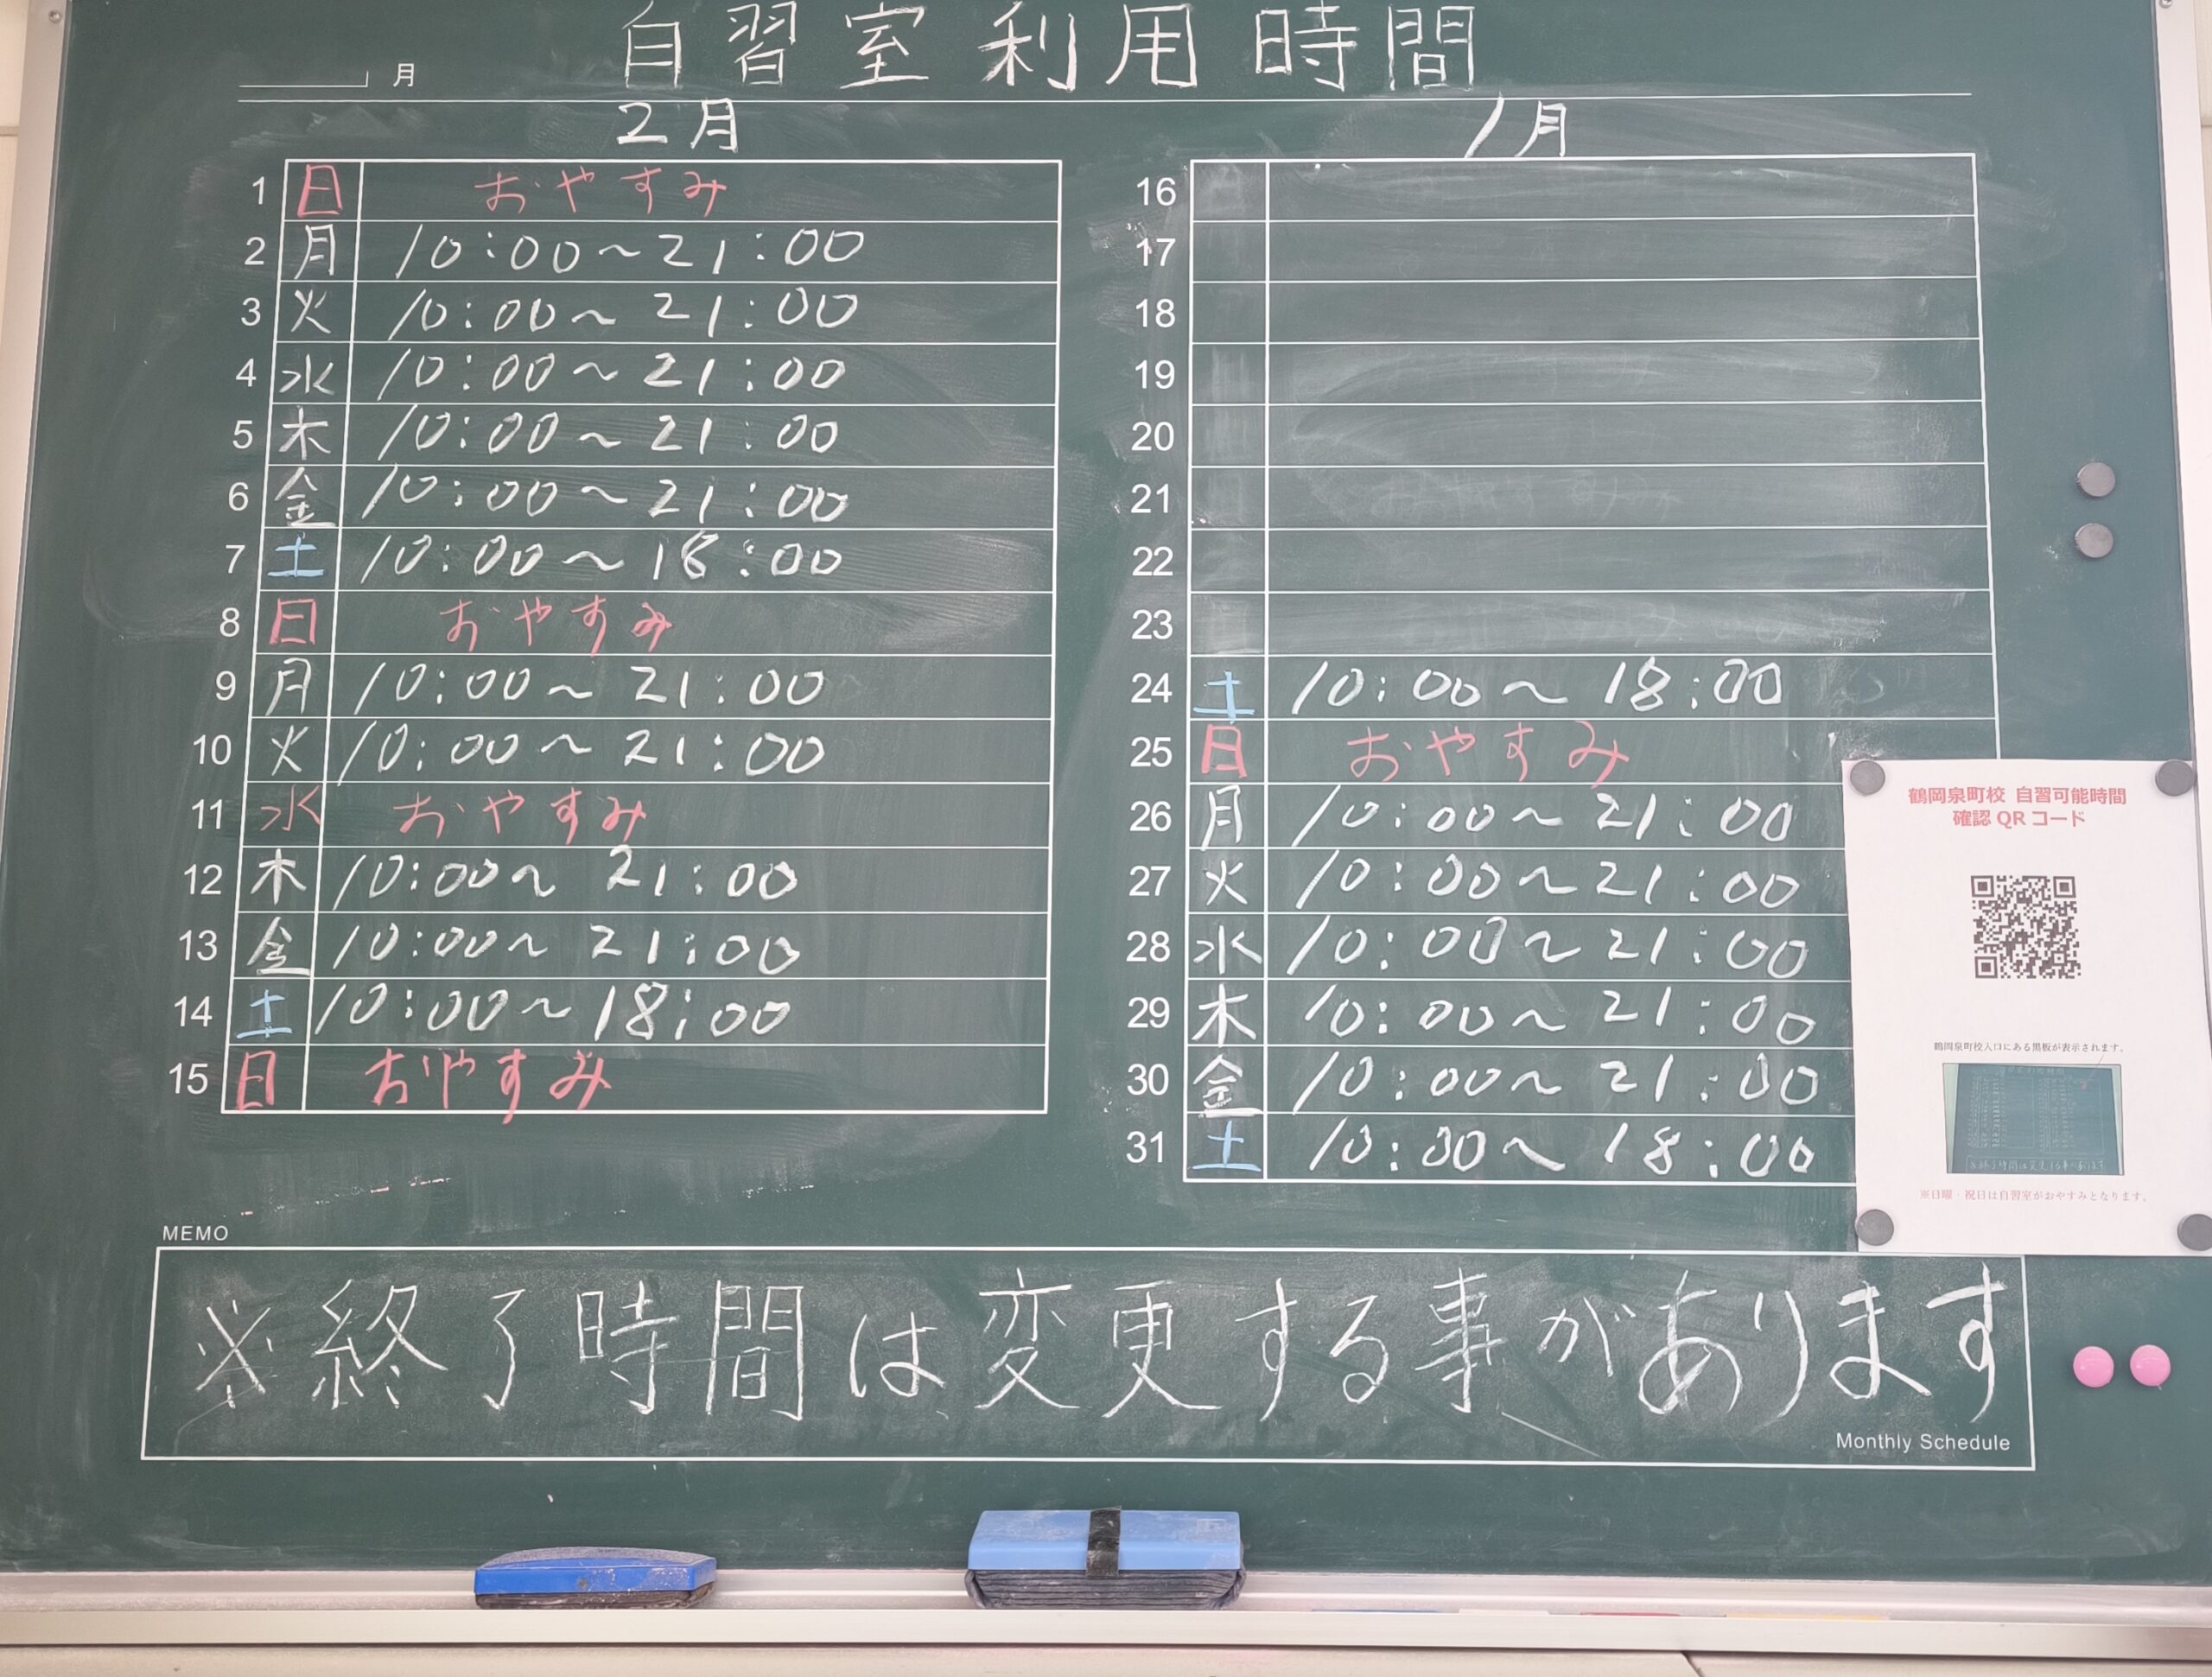 自習室利用時間
月
2月
1 日 おやすみ
2 月 10:00～21:00
3 火 10:00～21:00
4 水 10:00～21:00
5 木 10:00～21:00
6 金 10:00～21:00
7 土 10:00～18:00
8 日 おやすみ
9 月 10:00～21:00
10 火 10:00～21:00
11 水 おやすみ
12 木 10:00～21:00
13 金 10:00～21:00
14 土 10:00～18:00
15 日 おやすみ
1月
16
17
18
19
20
21
22
23
24 土 10:00～18:00
25 日 おやすみ
26 月 10:00～21:00
27 火 10:00～21:00
28 水 10:00～21:00
29 木 10:00～21:00
30 金 10:00～21:00
31 土 10:00～18:00
鶴岡泉町校 自習可能時間
確認 QR コード
鶴岡泉町校入口にある黒板が表示されます。
※日曜・祝日は自習室がおやすみとなります。
MEMO
※終了時間は変更する事があります
Monthly Schedule